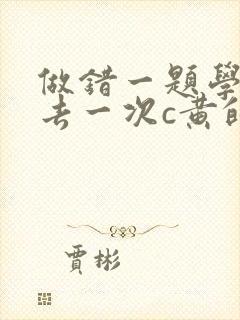 做錯一題學
去一次c黃自
賈彬